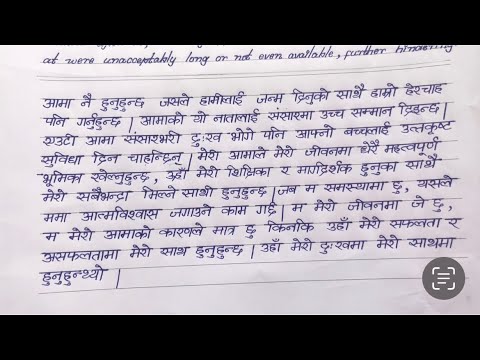 at were unacceptably long or not even available, further hindering
आमा नै हुनुहुन्छ जसले हामीलाई जन्म दिनुको साथै हाम्रो हेरचाह
पनि गर्नुहुन्छ | आमाको यो नातालाई संसारमा उच्च सम्मान दिइन्छ |
एउटी आमा संसारभरी दुःख भोगे पनि आफ्नो बच्चालाई उत्कृष्ट
सुविधा दिन चाहन्छिन् | मेरी आमाले मेरो जीवनमा धेरै महत्वपूर्ण
भूमिका खेल्नुहुन्छ, उहाँ मेरो शिक्षिका र मार्गदर्शक हुनुका साथै
मेरो सबैभन्दा मिल्ने साथी हुनुहुन्छ | जब म समस्यामा हु, यसले
ममा आत्मविश्वास जगाउने काम गर्छ | म मेरो जीवनमा जे छु,
म मेरो आमाको कारणले मात्र हु किनकि उहाँ मेरो सफलता र
असफलतामा मेरो साथ हुनुहुन्छ | उहाँ मेरो दुःखमा मेरो साथमा
हुनुहुन्थ्यो |